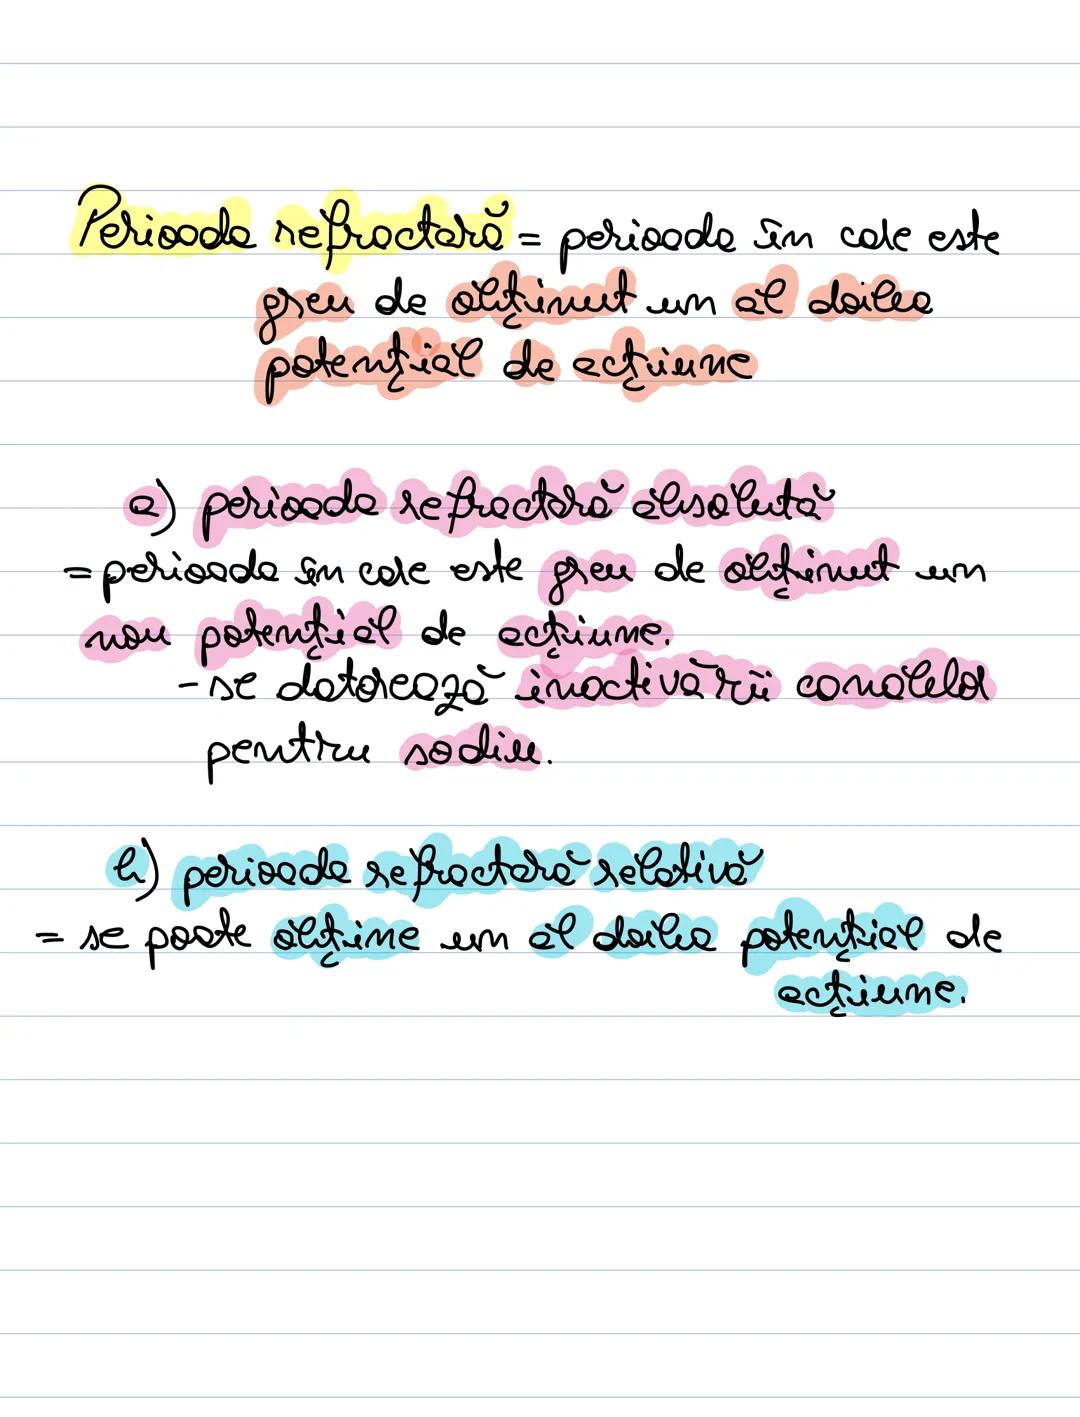 Perioada refractară = perioada în care este
greu de obținut un al doilea
potențial de acțiune
a) perioada refractară absolută
= perioada în care este greu de obținut un
nou potențial de acțiune.
- se datorează inactivării canalelor
pentru sodiu.
b) perioada refractară relativă
= se poate obține un al doilea potențial de
acțiune.